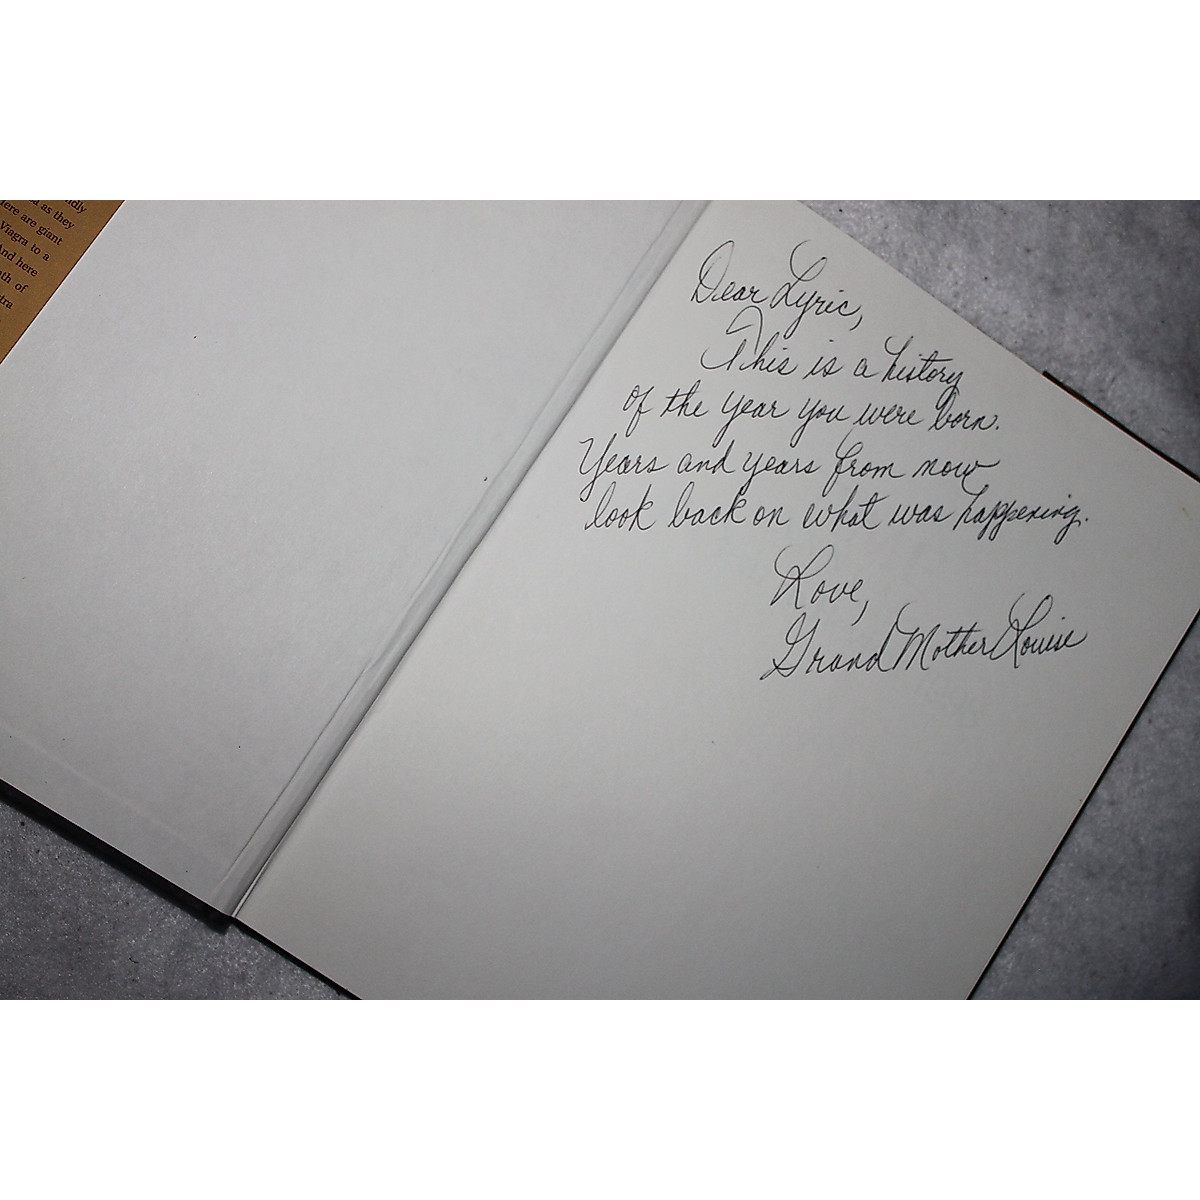 ndly
a as they
Here are giant
Viagra to a
And here
ath of
tra
Dear Lyric,
This is a history
of the year you were born.
Years and years from now
look back on what was happening.
Love,
GrandMother Louise